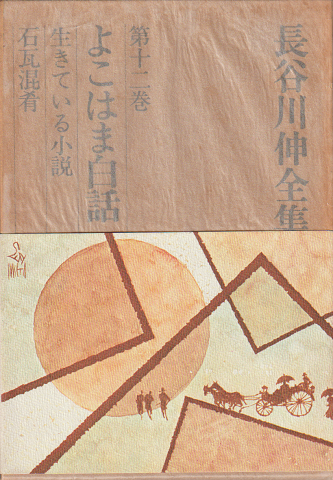 長谷川伸全集
第十二巻
よこはま白話
生きている小説
石瓦混肴